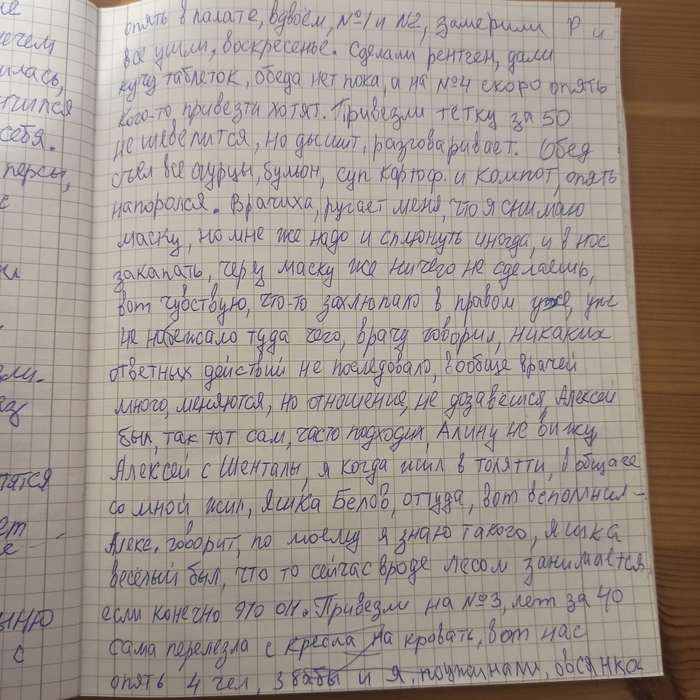 опять в палате, вдвоём, №1 и №2, замерили P и
все ушли, воскресенье. Сделали рентген, дали
кучу таблеток, обеда нет пока, а на №4 скоро опять
кого-то привезти хотят. Привезли тётку за 50
не шевелится, но дышит, разговаривает. Обед
съел все огурцы, бульон, суп картоф. и компот, опять
напоролся. Врачиха, ругает меня, что я снимаю
маску, но мне же надо и сплюнуть иногда, и в нос
закапать, через маску же ничего не сделаешь,
вот чувствую, что-то захлюпало в правом ухе, уж
не набежало туда чего, врачу говорил, никаких
ответных действий не последовало, вообще врачей
много, меняются, но отношение, не дозавёшся, Алексей
был, так тот сам, часто подходил, Алину не вижу,
Алексей с Шенталы, я когда жил в Толятти, в общаге
со мной жил, Яшка Белов, оттуда, вот вспомнил -
Алекс. говорит, по моему я знаю такого, Яшка
весёлый был, что то сейчас вроде лесом занимается,
если конечно это он. Привезли на №3, лет за 40
сама перелезла с кресла на кровать, вот нас
опять 4 чел, 3 бабы и я, поужинали, овсянка
ничем
илась,
себя.
персы,
с